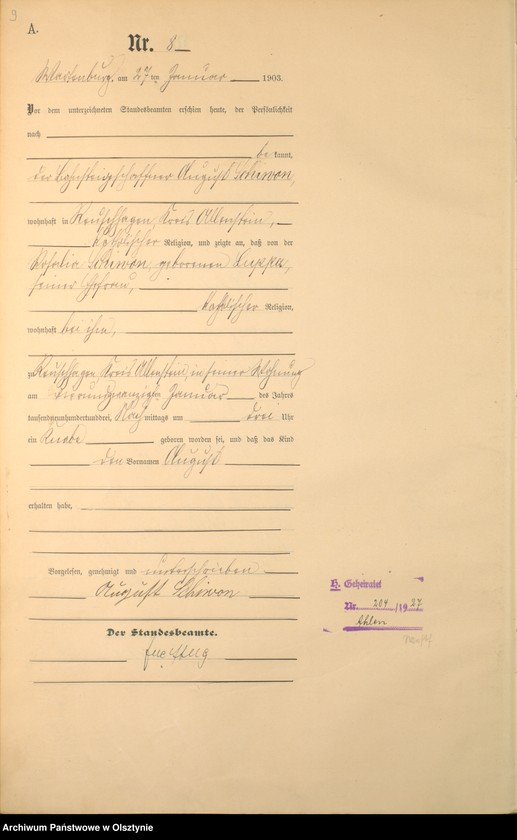 9
A.
Nr. 8
Wartenburg, am 27ten Januar 1903.
Vor dem unterzeichneten Standesbeamten erschien heute, der Persönlichkeit
nach
be kannt,
der Bahnsteigschaffner August Schiwon,
wohnhaft in Reuschhagen, Kreis Allenstein,
katholischer Religion, und zeigte an, daß von der
Rosalia Schiwon, geborenen Kuppa,
seiner Ehefrau,
katholischer Religion,
wohnhaft bei ihm,
zu Reuschhagen, Kreis Allenstein, in seiner Wohnung
am des Januar des Jahres
tausendneunhundertunddrei, Nach mittags um drei Uhr
ein Knabe geboren worden sei, und daß das Kind
den Vornamen August
erhalten habe,
Vorgelesen, genehmigt und unterschrieben
August Schiwon
Der Standesbeamte.
H. Geheiratet
Nr. 204 /19 27
Ahlen
Archiwum Państwowe w Olsztynie